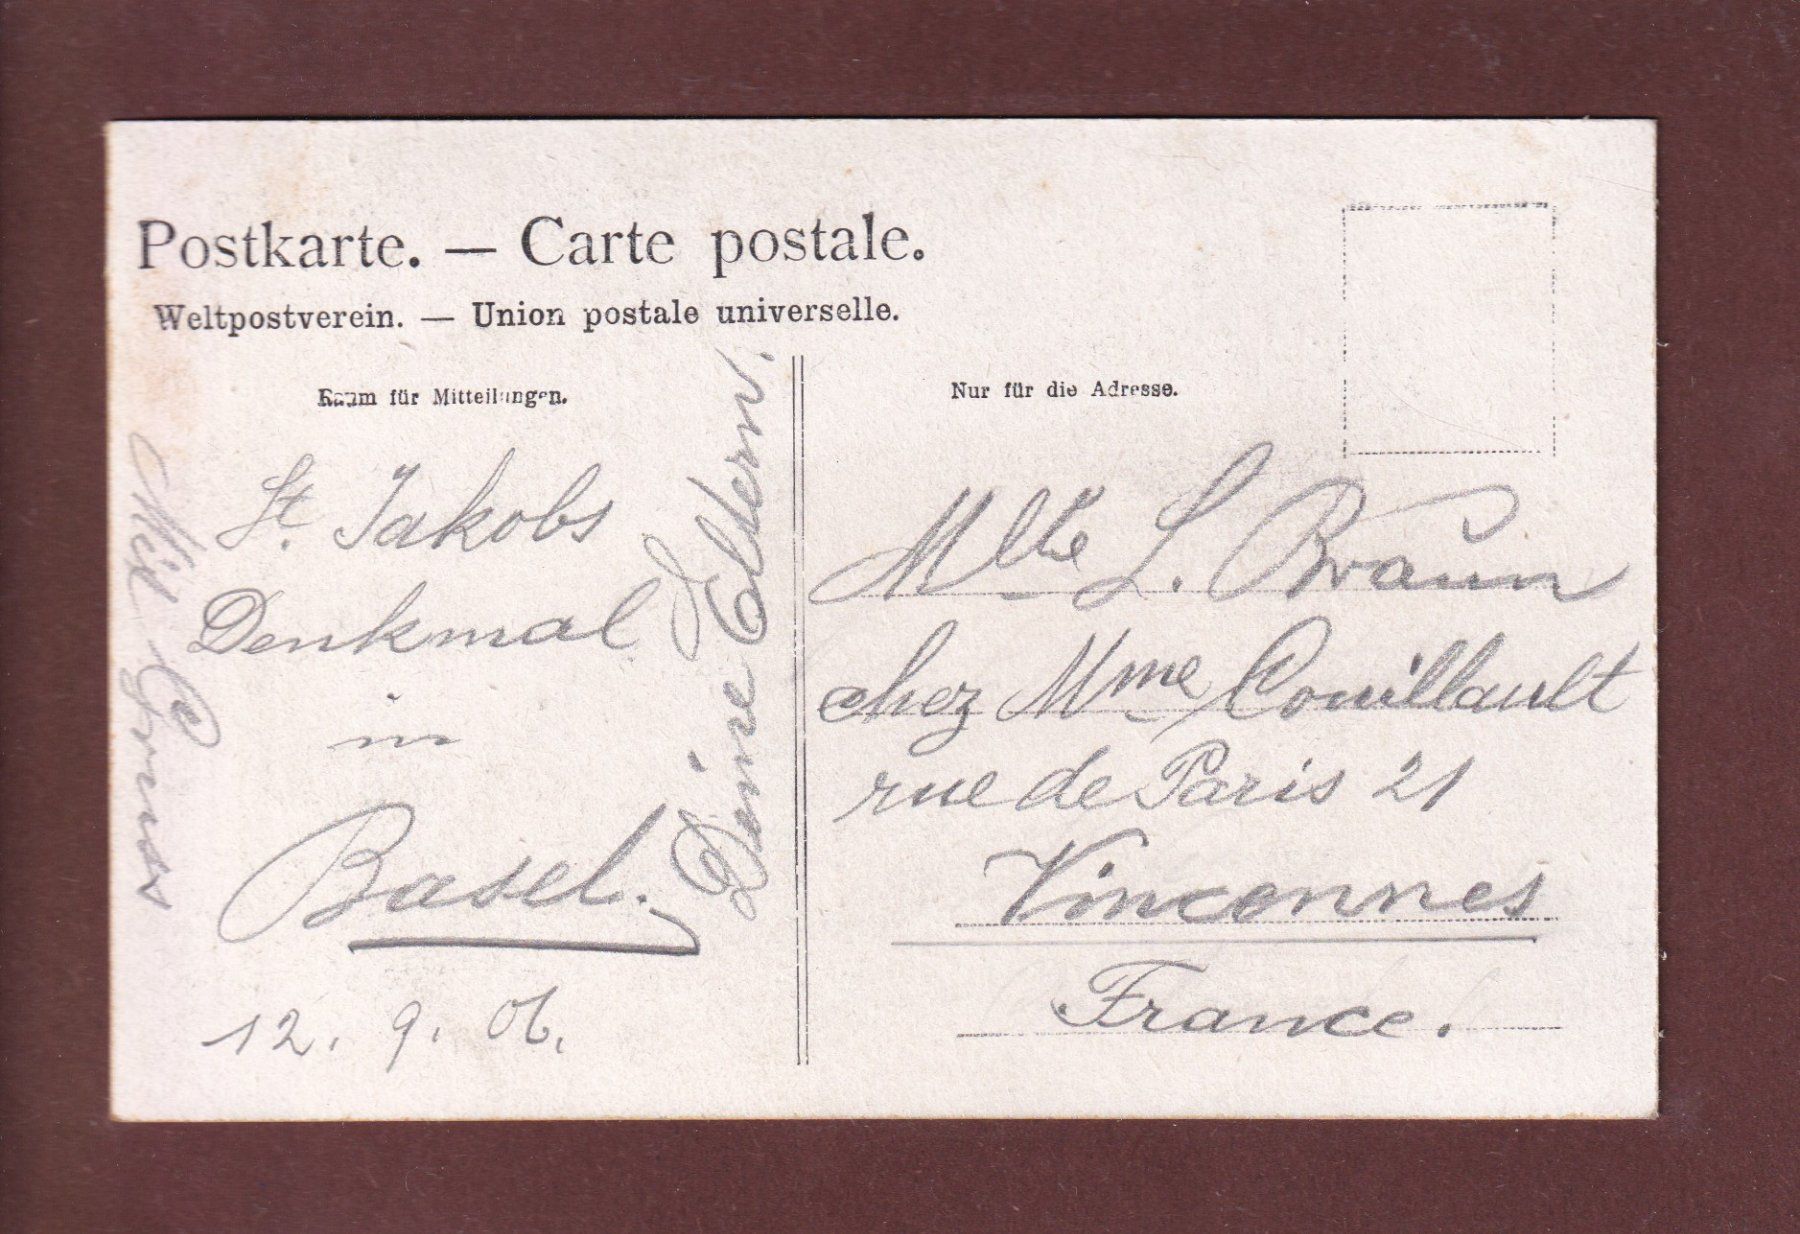 Postkarte. — Carte postale.
Weltpostverein. — Union postale universelle.
Raum für Mitteilungen.
St. Jakobs
Denkmal
in
Basel.
12. 9. 06.
Mit Gruss
Deine Eltern.
Nur für die Adresse.
Mlle L. Braun
chez Mme Couillault
rue de Paris 21
Vincennes
France.